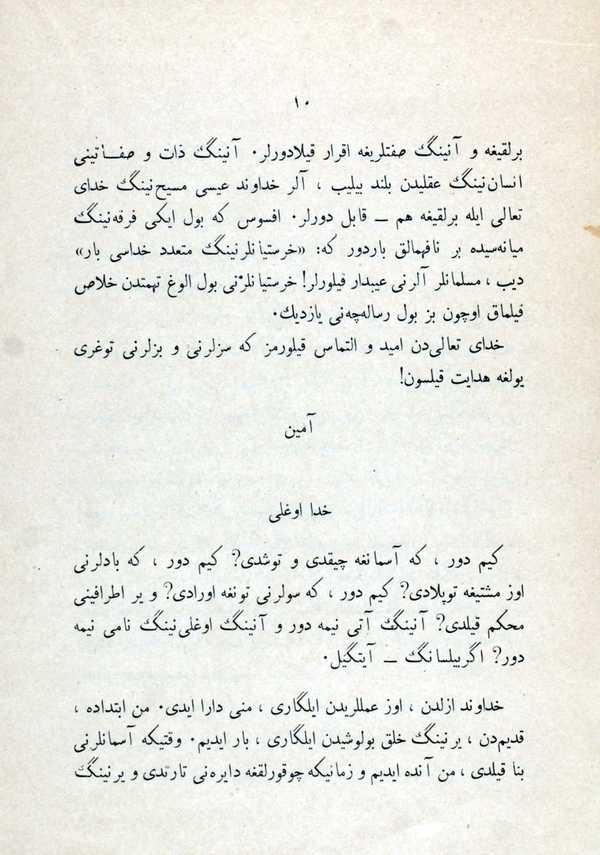 ١٠
برلقیغه و آنینگ صفتلریغه اقرار قیلادورلر. آنینگ ذات و صفاتینی
انسان‌نینگ عقلیدن بلند بیلیب ، آلر خداوند عیسی مسیح‌نینگ خدای
تعالی ایله برلقیغه هم ــ قابل دورلر. افسوس که بول ایکی فرقه‌نینگ
میانه‌سیده بر نافهمالق باردور که: «خرستیانلرنینگ متعدد خداسی بار»
دیب ، مسلمانلر آلرنی عیبدار قیلورلر! خرستیانلرنی بول الوغ تهمتدن خلاص
قیلماق اوچون بز بول رساله‌چه‌نی یازدیك.
خدای تعالی‌دن امید و التماس قیلورمز که سزلرنی و بزلرنی توغری
یولغه هدایت قیلسون!
آمین
خدا اوغلی
کیم دور ، که آسمانغه چیقدی و توشدی? کیم دور ، که بادلرنی
اوز مشتیغه توپلادی? کیم دور ، که سولرنی تونغه اورادی? و یر اطرافینی
محکم قیلدی? آنینگ آتی نیمه دور و آنینگ اوغلی‌نینگ نامی نیمه
دور? اگربیلسانگ ــ آیتگیل.
خداوند ازلدن ، اوز عمللریدن ایلگاری ، منی دارا ایدی. من ابتداده ،
قدیم‌دن ، یرنینگ خلق بولوشیدن ایلگاری ، بار ایدیم. وقتیکه آسمانلرنی
بنا قیلدی ، من آنده ایدیم و زمانیکه چوقورلقغه دایره‌نی تارتدی و یرنینگ